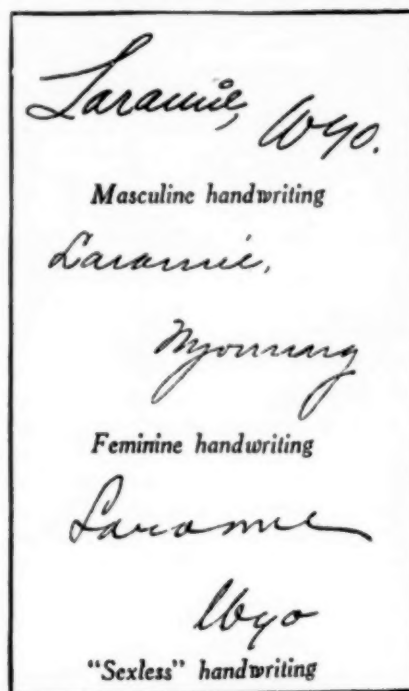 Laramie, Wyo.
Masculine handwriting
Laramie,
Wyoming
Feminine handwriting
Laramie
Wyo
"Sexless" handwriting